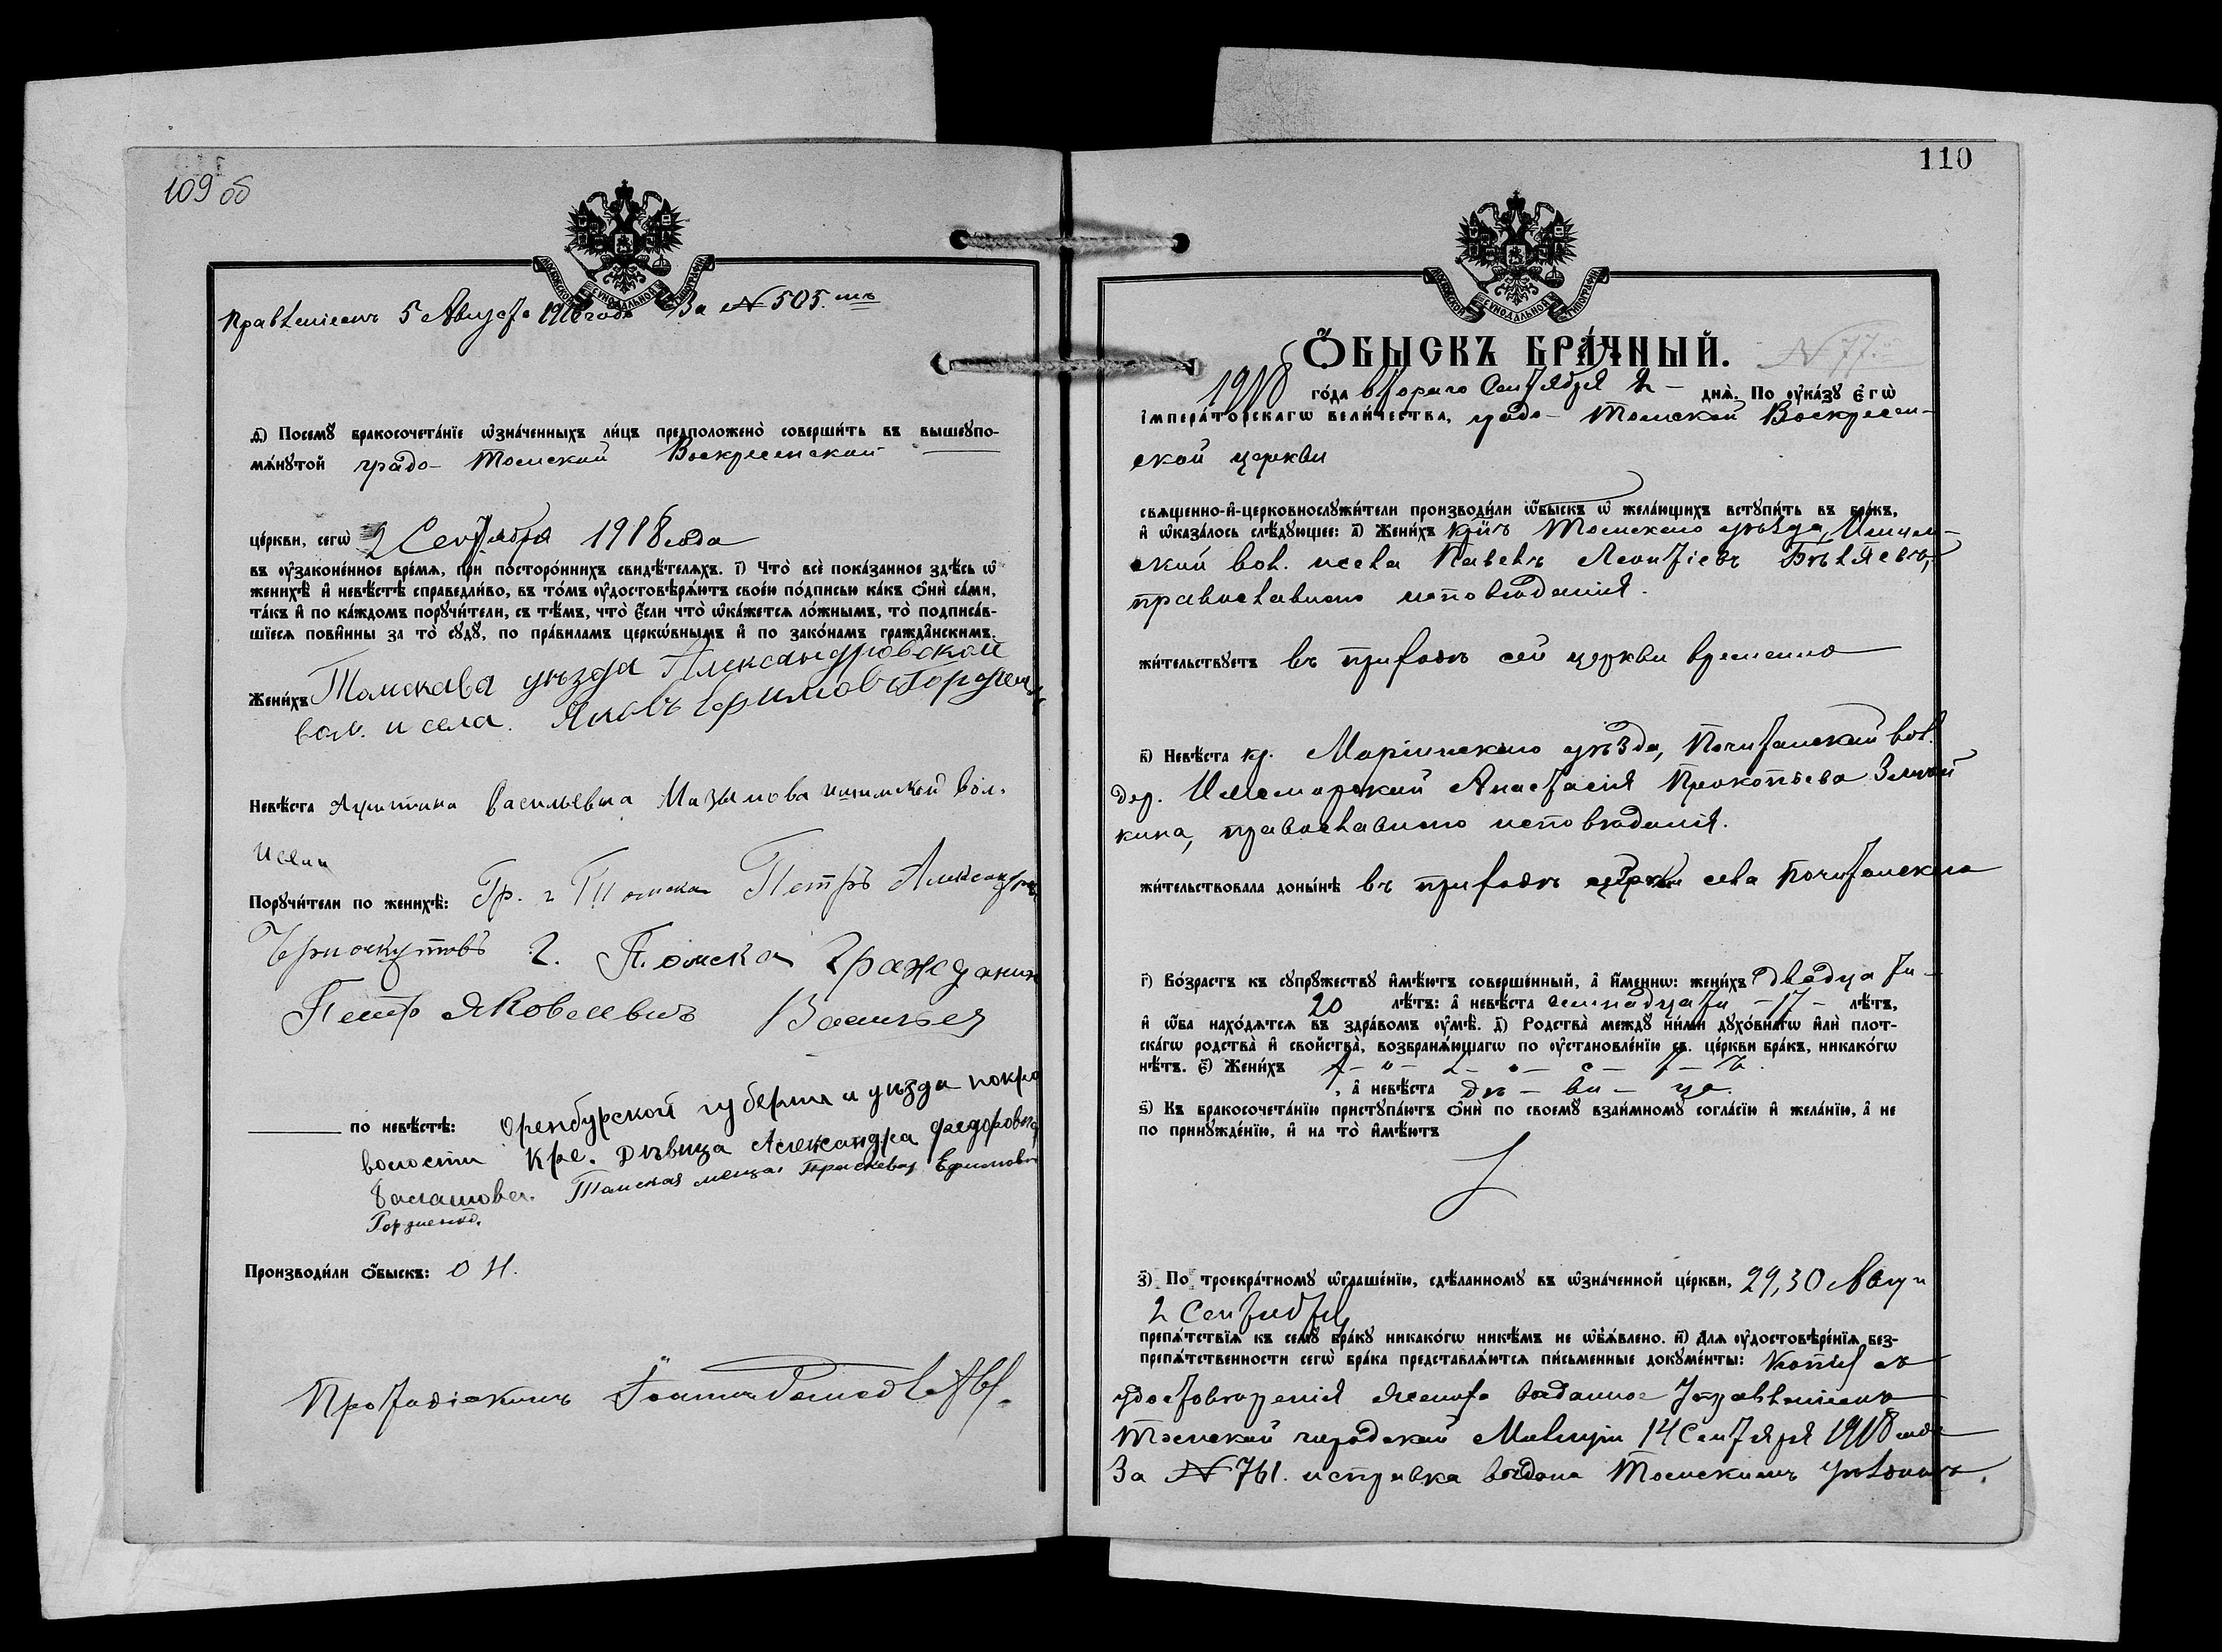 109 об
МОСКОВСКОЙ СУНОДАЛЬНОЙ ТИПОГРАФІИ
Правленіемъ 5 Августа 1918 года За № 505.мъ
д҃) Посемꙋ бракосочета́нїе ѡ҆зна́ченныхъ ли́цъ предположено̀ соверши́ть въ вышеꙋпо-
мѧ́нꙋтой градо- Томской Воскресенской
це́ркви, сегѡ̀ 2 Сентября 1918 года
въ оу҆зако́ненное вре́мѧ, при посторо́ннихъ свидѣ́телѧхъ. і҃) Что̀ всѐ пока́занное здѣ́сь ѡ҆
женихѣ̀ и҆ невѣ́стѣ справедли́во, въ то́мъ оу҆достовѣрѧ́ютъ свое́ю по́дписью ка́къ ѻ҆нѝ са́ми,
та́къ и҆ по ка́ждомъ порꙋчи́тели, съ тѣ́мъ, что̀ є҆́сли что̀ ѡ҆ка́жетсѧ ло́жнымъ, то̀ подписа́в-
шїесѧ пови́нны за то̀ сꙋдꙋ̀, по пра́виламъ церко́внымъ и҆ по зако́намъ гражда́нскимъ.
Жени́хъ Томскава уѣзда Александровской
вол. и села. Яковъ Ефимовъ
Невѣ́ста Васильевна Мазылова ишимской вол.
Порꙋчи́тели по женихѣ̀: Гр. г Томска Петръ Александръ
г. Томска гражданин
Петр Яковлевичъ
по невѣ́стѣ: Оренбурской губернии уѣзда покро
волости Кре. Дѣвица Александра Федоровна
Томская мещан Прасковья Ефимовна
Производи́ли ѻ҆́быскъ: О Н.
Протодіаконъ Іоаннъ
110
МОСКОВСКОЙ СУНОДАЛЬНОЙ ТИПОГРАФІИ
Ѻ҆́БЫСКЪ БРА́ЧНЫЙ. № 77.й
1918 го́да второго Сентября 2 - днѧ̀. По оу҆ка́зꙋ є҆гѡ̀
і҆мпера́торскагѡ вели́чества, градо- Томской Воскресен-
ской церкви
свѧще́нно-и҆-церковнослꙋжи́тели производи́ли ѡ҆́быскъ ѡ҆ жела́ющихъ встꙋпи́ть въ бра́къ,
и҆ ѡ҆каза́лось слѣ́дꙋющее: а҃) Жени́хъ крнъ Томскаго уѣзда, Ишим-
ской вол. и села Павелъ Леонтіевъ Бѣляевъ,
православнаго исповѣданія.
жи́тельствꙋетъ въ приходѣ сей церкви временно
в҃) Невѣ́ста кр. Маріинскаго уѣзда, Почитанской вол.
дер. Анастасія Прокопьева
кина, православнаго исповѣданія.
жи́тельствовала доны́нѣ въ приходѣ села Почитанскаго
г҃) Во́зрастъ къ сꙋпрꙋ́жествꙋ и҆мѣ́ютъ соверше́нный, а҆ и҆́меннѡ: жени́хъ двадцати
20 лѣ́тъ: а҆ невѣ́ста семнадцати - 17 - лѣ́тъ,
и҆ ѻ҆́ба нахо́дѧтсѧ въ здра́вомъ оу҆мѣ̀. д҃) Родства̀ междꙋ ни́ми дꙋхо́внагѡ и҆лѝ плот-
ска́гѡ родства̀ и҆ сво́йства̀, возбранѧ́ющагѡ по оу҆становле́нїю св. це́ркви бра́къ, никако́гѡ
нѣ́тъ. є҃) Жени́хъ х - о - л - о - с - т - ъ
, а҆ невѣ́ста дѣ - ви - ца.
ѕ҃) Къ бракосочета́нїю пристꙋпа́ютъ ѻ҆нѝ по своемꙋ̀ взаи́мномꙋ согла́сїю и҆ жела́нїю, а҆ не
по принꙋжде́нїю, и҆ на то̀ и҆мѣ́ютъ
з҃) По троекра́тномꙋ ѡ҆глаше́нїю, сдѣ́ланномꙋ въ ѡ҆зна́ченной це́ркви, 29, 30 Авгу и
2 Сентября
препѧ́тствїѧ къ семꙋ̀ бра́кꙋ никако́гѡ никѣ́мъ не ѡ҆б̾ѧ́влено. и҃) Длѧ оу҆достовѣре́нїѧ без-
препѧ́тственности сегѡ̀ бра́ка представлѧ́ютсѧ пи́сьменные докꙋме́нты: Копія съ
удостовѣренія жениха выданное Управленіемъ
Томской городской Милиціи 14 Сентября 1918 года
За № 761. и справка выдана Томскимъ уѣзднымъ